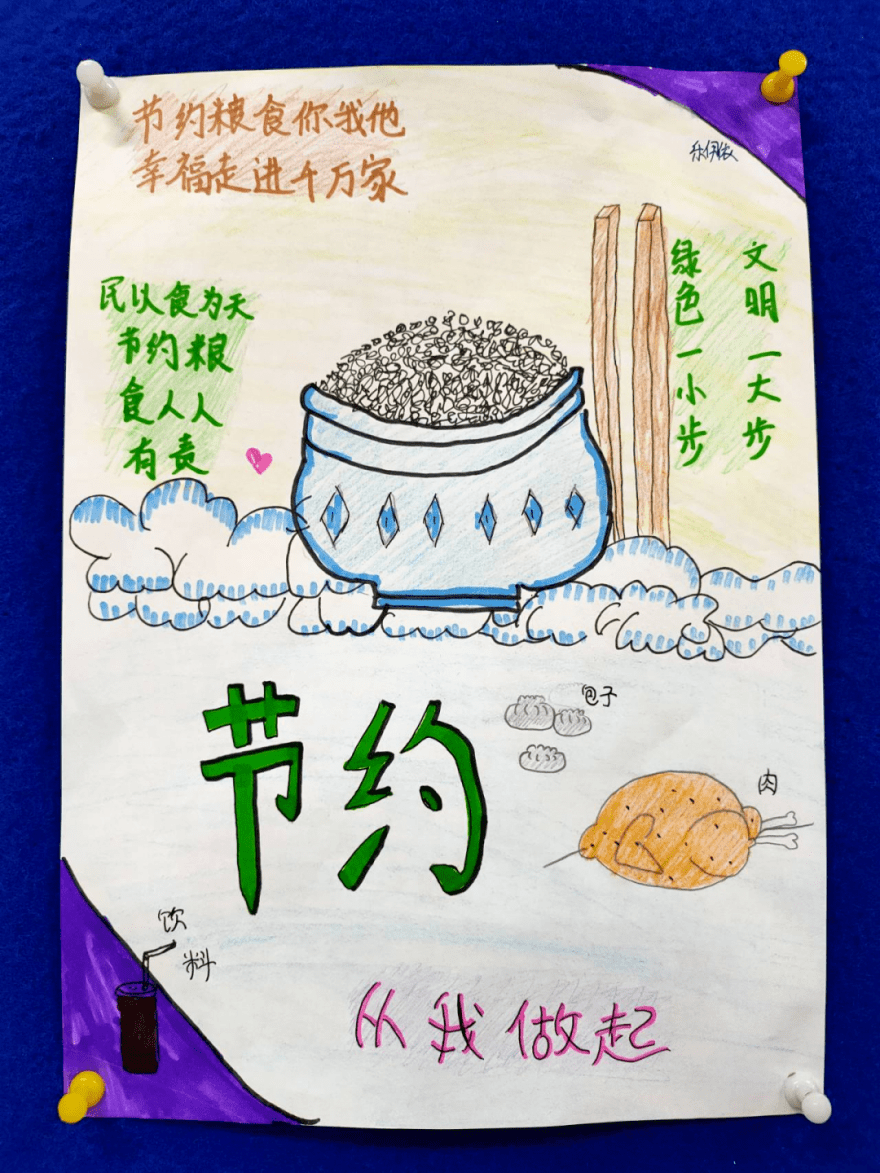 节约粮食你我他
幸福走进千万家
民以食为天
节约粮
食人人
有责
文明一大步
绿色一小步
节约
包子
肉
饮
料
从我做起